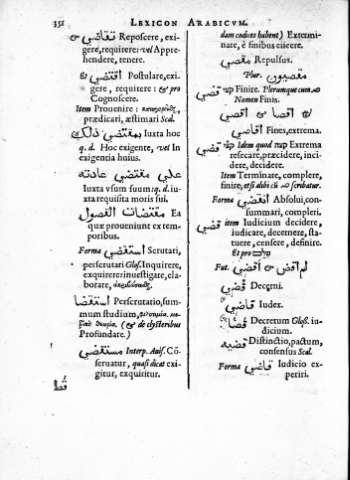 351 LEXICON ARABICVM.
تقاضي Reposcere, exi-
gere, requirere: vel Appre-
hendere, tenere.
اقتضي & Postulare, exi-
gere, requirere: & pro
Cognoscere.
Item Prouenire:
prædicari, æstimari Scal.
بمقتضي ذلك Iuxta hoc
q. d. Hoc exigente, vel In
exigentia huius.
علي مقتضي عادته
Iuxta vsum suum q. d. iu-
xta requisita moris sui.
مقتضات الفصول Ea
quæ proueniunt ex tem-
poribus.
Forma استقضي Scrutari,
perscrutari Glos. Inquirere,
exquirere: inuestigare, ela-
borare,
استقضا Perscrutatio, sum-
mum studium,
(& de clysteribus
Profundare.)
مستقضي Interp. Auis. Cō-
seruatur, quasi dicat exi-
gitur, exquiritur.
قط
dam codices habent) Extermi-
nare, è finibus eiicere.
مقصي Repulsus.
Plur.
مقصيون
قضي Finire. Plerunque cum
Nomen Finis.
& اقصا & اقصي
اقاصي Fines, extrema.
قضي Idem quod Extrema
resecare, præcidere, inci-
dere, decidere.
Item Terminare, complere,
finire, etsi alibi cū scribatur.
Forma انقضي Absolui, con-
summari, compleri.
قضي item Iudicium decidere,
iudicare, decernere, sta-
tuere, censere, definire.
Et pro
Fut. اقضي &
قضي Decerni.
قاضي Iudex.
قضا Decretum Glos. iu-
dicium.
قضيه Distinctio, pactum,
consensus Scal.
Forma قاضي Iudicio ex-
periri.